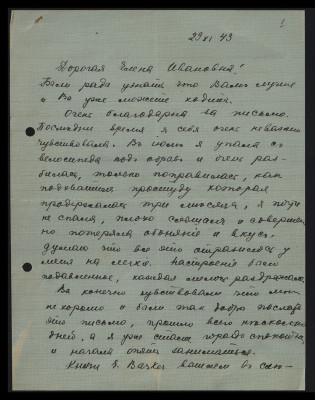 1
29 XI 43
Дорогая Елена Ивановна!
Была рада узнать что Вам лучше
и Вы уже можете ходить.
Очень благодарна за письмо.
Последнее время я себя очень неважно
чувствовала. Во I я упала с
велосипеда под обрыв и очень раз-
билась, только поправилась, как
подхватила простуду которая
продержалась три месяца, я
не спала, плохо слышала и совершен
но потеряла обоняние и вкус.
Думаю что все это отразилось у
меня на легких. Настроение было
подавленное, каждая мелочь раздражала.
Вы конечно чувствовали что мне
не хорошо и были так добры послать
это письмо, прошло всего несколько
дней, а я уже стала гораздо спокойнее
и начала опять заниматься.
Книги